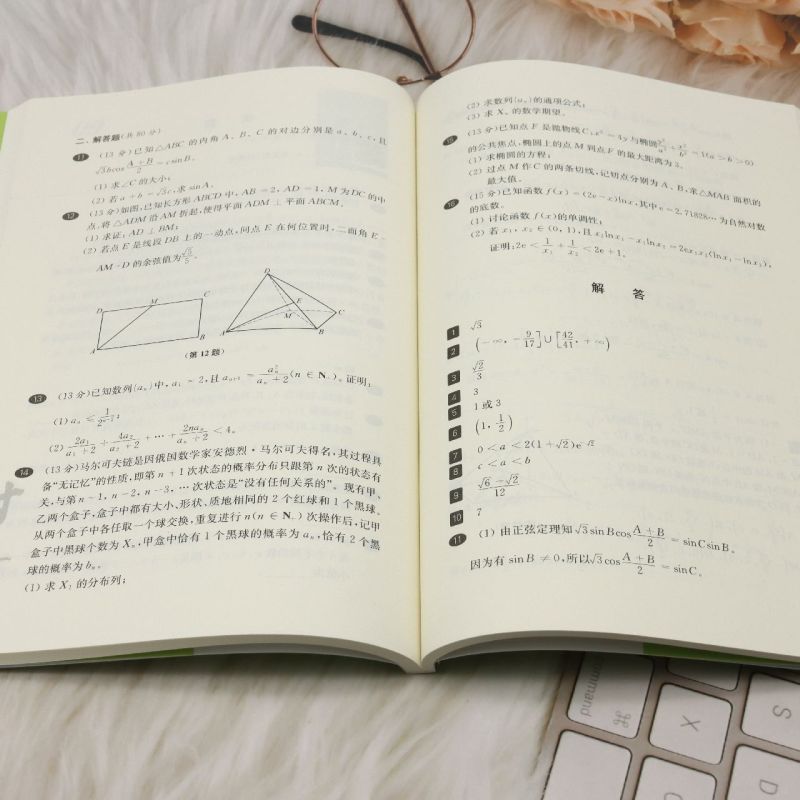 二、解答题(共80分)
11 (13分)已知△ABC的内角A、B、C的对边分别是a、b、c,且
√3bcos (A+B)/2 = csinB。
(1) 求∠C的大小;
(2) 若a+b=√3c,求sinA。
12 (13分)如图,已知长方形ABCD中,AB=2,AD=1,M为DC的中
点,将△ADM沿AM折起,使得平面ADM⊥平面ABCM。
(1) 求证:AD⊥BM;
(2) 若点E是线段DB上的一动点,问点E在何位置时,二面角E-
AM-D的余弦值为√5/5。
D M C
A B
D
E
M C
A B
(第12题)
13 (13分)已知数列{aₙ}中,a₁=2,且aₙ₊₁=aₙ²/(aₙ+2)(n∈N₊)。证明:
(1) aₙ≤1/2ⁿ⁻²;
(2) 2a₁/(a₁+2)+4a₂/(a₂+2)+⋯+2naₙ/(aₙ+2)<4。
14 (13分)马尔可夫链是因俄国数学家安德烈·马尔可夫得名,其过程具
备“无记忆”的性质,即第n+1次状态的概率分布只跟第n次的状态有
关,与第n-1,n-2,n-3,…次状态是“没有任何关系的”。现有甲、
乙两个盒子,盒子中都有大小、形状、质地相同的2个红球和1个黑球。
从两个盒子中各任取一个球交换,重复进行n(n∈N₊)次操作后,记甲
盒子中黑球个数为Xₙ,甲盒中恰有1个黑球的概率为aₙ,恰有2个黑
球的概率为bₙ。
(1) 求X₁的分布列;
(2) 求数列{aₙ}的通项公式;
(3) 求Xₙ的数学期望。
15 (13分)已知点F是抛物线C:x²=4y与椭圆y²/a²+x²/b²=1(a>b>0)
的公共焦点,椭圆上的点M到点F的最大距离为3。
(1) 求椭圆的方程;
(2) 过点M作C的两条切线,记切点分别为A、B,求△MAB面积的
最大值。
16 (15分)已知函数f(x)=(2e-x)lnx,其中e=2.71828…为自然对数
的底数。
(1) 讨论函数f(x)的单调性;
(2) 若x₁,x₂∈(0,1),且x₂lnx₁-x₁lnx₂=2ex₁x₂(lnx₁-lnx₂),
证明:2e<1/x₁+1/x₂<2e+1。
解 答
1 √3
2 (-∞,-9/17]∪[42/41,+∞)
3 √2/3
4 3
5 1或3
6 (1,1/2)
7 0<a<2(1+√2)e^(-√2)
8 c<a<b
9 (√6-√2)/12
10 7
11 (1) 由正弦定理知√3sinBcos (A+B)/2 = sinCsinB。
因为有sinB≠0,所以√3cos (A+B)/2 = sinC。
command
⌘
X
S